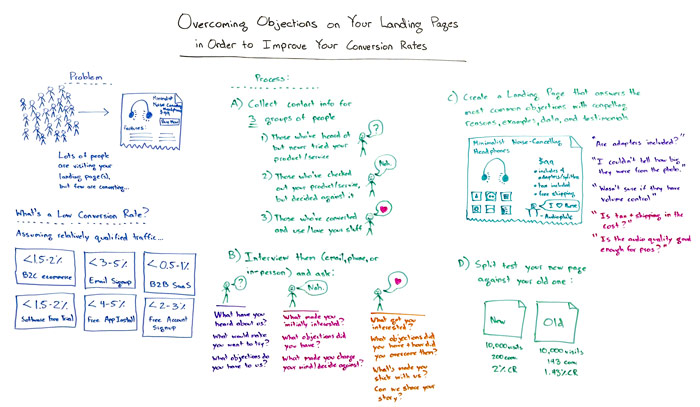 Overcoming Objections on Your Landing Pages
in Order to Improve Your Conversion Rates
Problem
Minimalist
Noise-Cancelling
Headphones
$99
Buy Now!
Features:
Lots of people
are visiting your
landing page(s),
but few are converting...
What's a Low Conversion Rate?
Assuming relatively qualified traffic...
<1.5-2%
B2C ecommerce
<3-5%
Email Signup
<0.5-1%
B2B SaaS
<1.5-2%
Software Free Trial
<4-5%
Free App Install
<2-3%
Free Account
Signup
Process:
A) Collect contact info for
3 groups of people
1) Those who've heard of
but never tried your
product/service
?
2) Those who've checked
out your product/service,
but decided against it
Nah.
3) Those who've converted
and use/love your stuff
B) Interview them (email, phone, or
in-person) and ask:
?
What have you
heard about us?
What would make
you want to try?
What objections do
you have to us?
Nah.
What made you
initially interested?
What objections did
you have?
What made you change
your mind/decide against?
What got you
interested?
What objections did
you have & how did
you overcome them?
What's made you
stick with us?
Can we share your
story?
C) Create a Landing Page that answers the
most common objections with compelling
reasons, examples, data, and testimonials
Minimalist Noise-Cancelling
Headphones
$99
• includes 4
adapters/splitters
• tax included
• free shipping
- Audiophile
"Are adapters included?"
"I couldn't tell how big
they were from the photo."
"Wasn't sure if they have
volume control"
"Is tax + shipping in the
cost?"
"Is the audio quality good
enough for pros?"
D) Split test your new page
against your old one:
New
10,000 visits
200 conv
2% CR
Old
10,000 visits
143 conv
1.43% CR